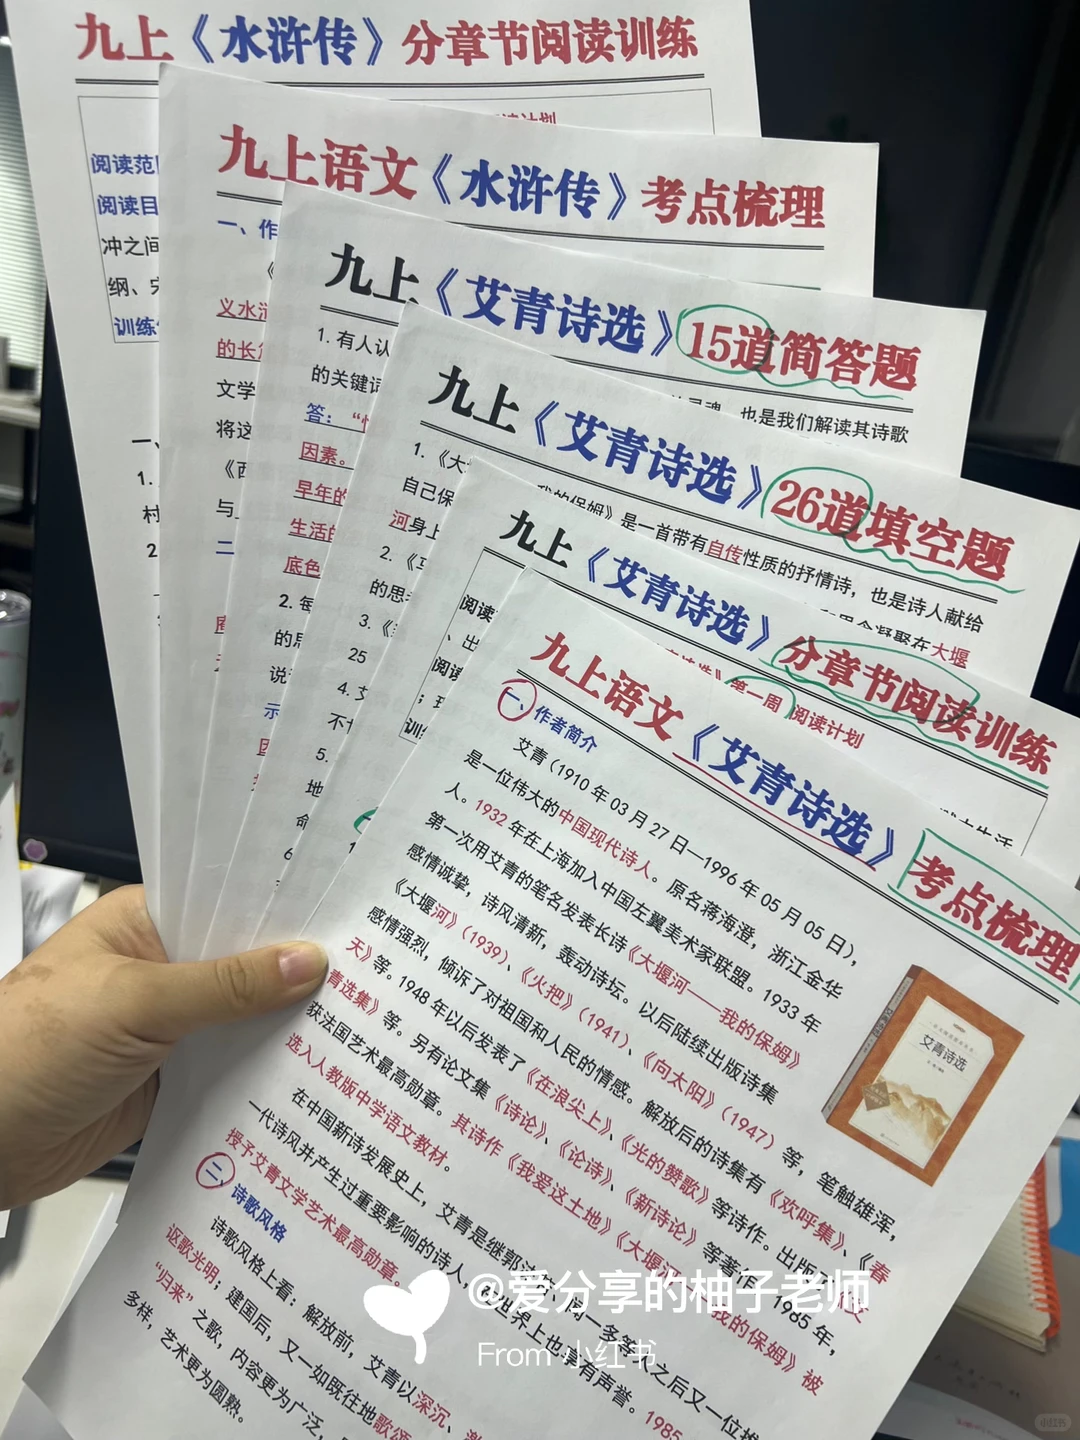 九上《水浒传》分章节阅读训练
阅读范
阅读目
冲之间
纲、
训练
一、
1.
村
2
九上语文《水浒传》考点梳理
一、作
义水浒
的长
文学
将这
《西
与
二
九上《艾青诗选》15道简答题
1. 有人认
也是我们解读其诗歌
的关键词
答：“
因素。
早年的
生活的
底色
2. 每
的思
说
示
九上《艾青诗选》26道填空题
1.《大
我的保姆》是一首带有自传性质的抒情诗，也是诗人献给
自己保
凝聚在大堰
河身上
2.《
的思
3.《
25
4. 艾
不
5.
地
命
6
九上《艾青诗选》分章节阅读训练
第一周 阅读计划
阅读
、出
阅读
训
九上语文《艾青诗选》考点梳理
一、作者简介
艾青（1910 年 03 月 27 日—1996 年 05 月 05 日），
是一位伟大的中国现代诗人。原名蒋海澄，浙江金华
人。1932 年在上海加入中国左翼美术家联盟。1933 年
第一次用艾青的笔名发表长诗《大堰河——我的保姆》
感情诚挚，诗风清新，轰动诗坛。以后陆续出版诗集
《大堰河》（1939）、《火把》（1941）、《向太阳》（1947）等，笔触雄浑，
感情强烈，倾诉了对祖国和人民的情感。解放后的诗集有《欢呼集》、《春
天》等。1948 年以后发表了《在浪尖上》、《光的赞歌》等诗作。出版
青选集》等。另有论文集《诗论》、《论诗》、《新诗论》等著作。1985 年，
获法国艺术最高勋章。其诗作《我爱这土地》《大堰河——我的保姆》被
选入人教版中学语文教材。
在中国新诗发展史上，艾青是继郭沫若、闻一多等人之后又一位推
一代诗风并产生过重要影响的诗人，在世界上也享有声誉。1985
授予艾青文学艺术最高勋章。
二、诗歌风格
诗歌风格上看：解放前，艾青以深沉、激
讴歌光明；建国后，又一如既往地歌颂
“归来”之歌，内容更为广泛，
多样，艺术更为圆熟。
艾青诗选
@爱分享的柚子老师
From 小红书
小红书